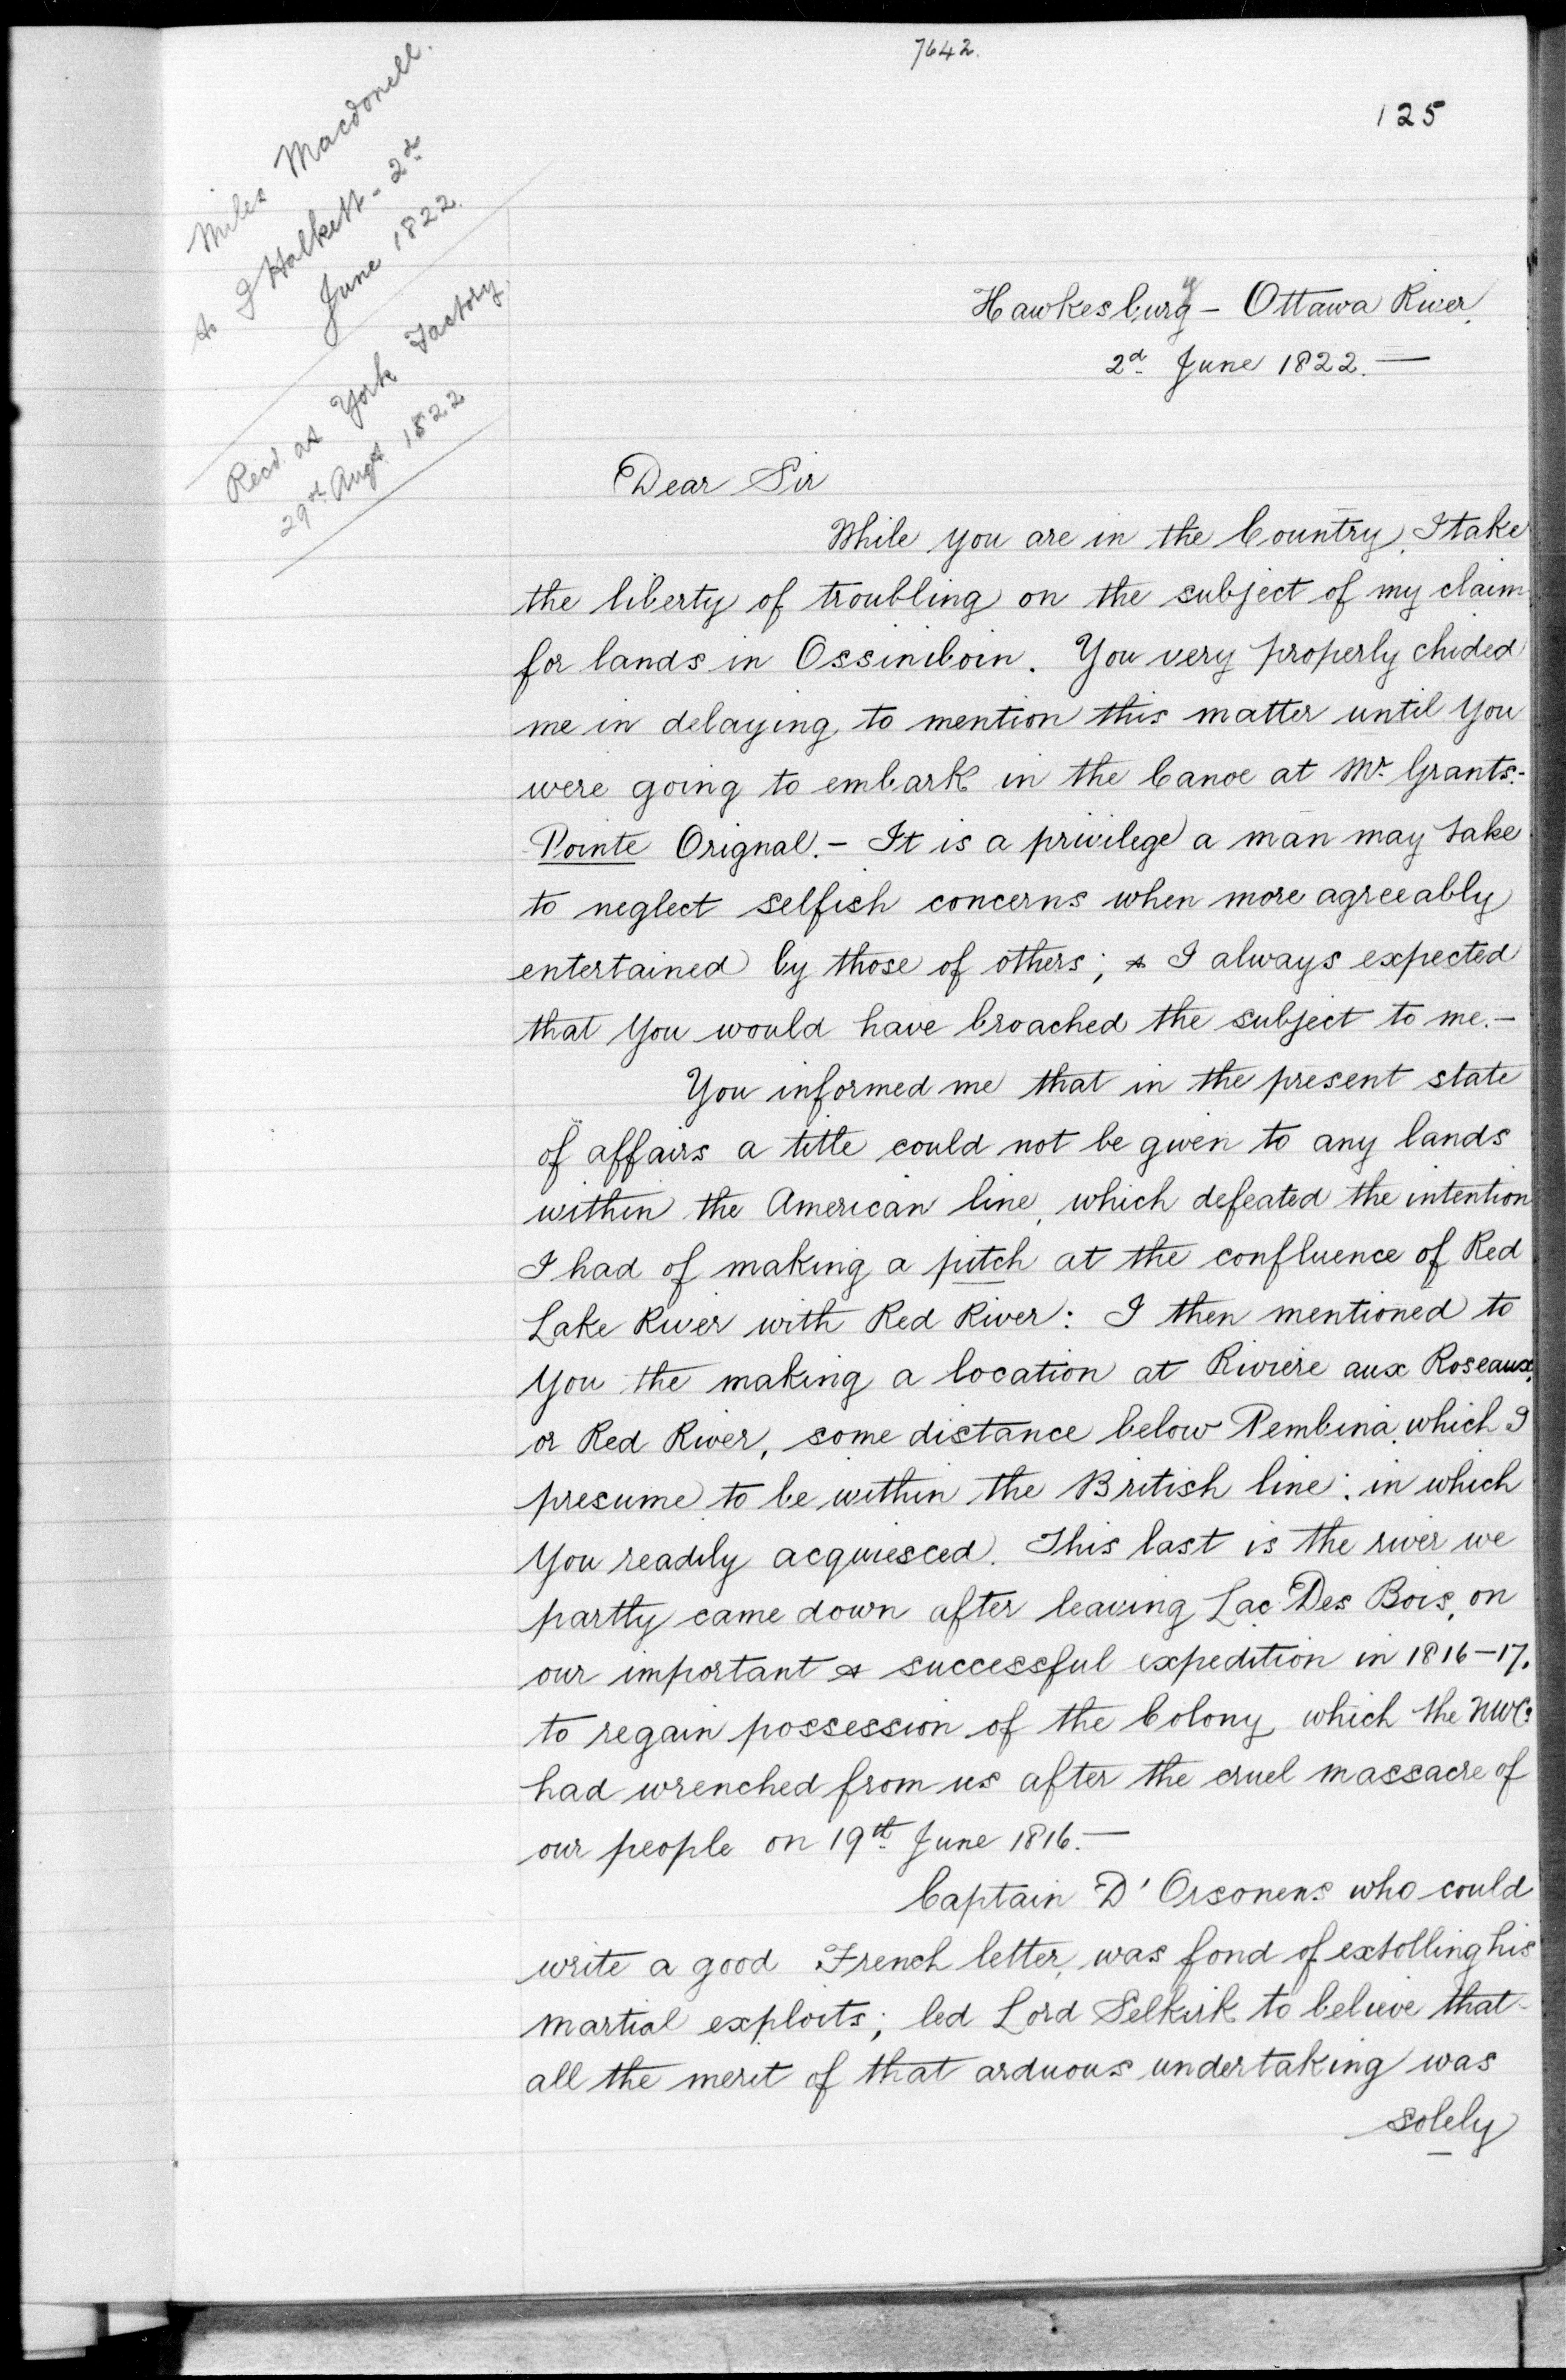 7642.
125
Miles Macdonell.
to J Halkett - 2d
June 1822.
Recd. at York Factory.
29th Augt. 1822
Hawkesbury - Ottawa River.
2d. June 1822. —
Dear Sir
While you are in the Country, I take
the liberty of troubling on the subject of my claim
for lands in Ossiniboin. You very properly chided
me in delaying to mention this matter until you
were going to embark in the Canoe at Mr. Grants-
Pointe Orignal. - It is a privilege a man may take
to neglect selfish concerns when more agreeably
entertained by those of others; & I always expected
that you would have broached the subject to me. -
You informed me that in the present state
of affairs a title could not be given to any lands
within the American line, which defeated the intention
I had of making a pitch at the confluence of Red
Lake River with Red River: I then mentioned to
you the making a location at Riviere aux Roseaux,
or Red River, some distance below Pembina, which I
presume to be within the British line: in which
you readily acquiesced. This last is the river we
partly came down after leaving Lac Des Bois, on
our important & successful expedition in 1816-17.
to regain possession of the Colony which the NWC:
had wrenched from us after the cruel massacre of
our people on 19th. June 1816. —
Captain D'Orsonens who could
write a good French letter, was fond of extolling his
martial exploits; led Lord Selkirk to believe that
all the merit of that arduous undertaking was
solely